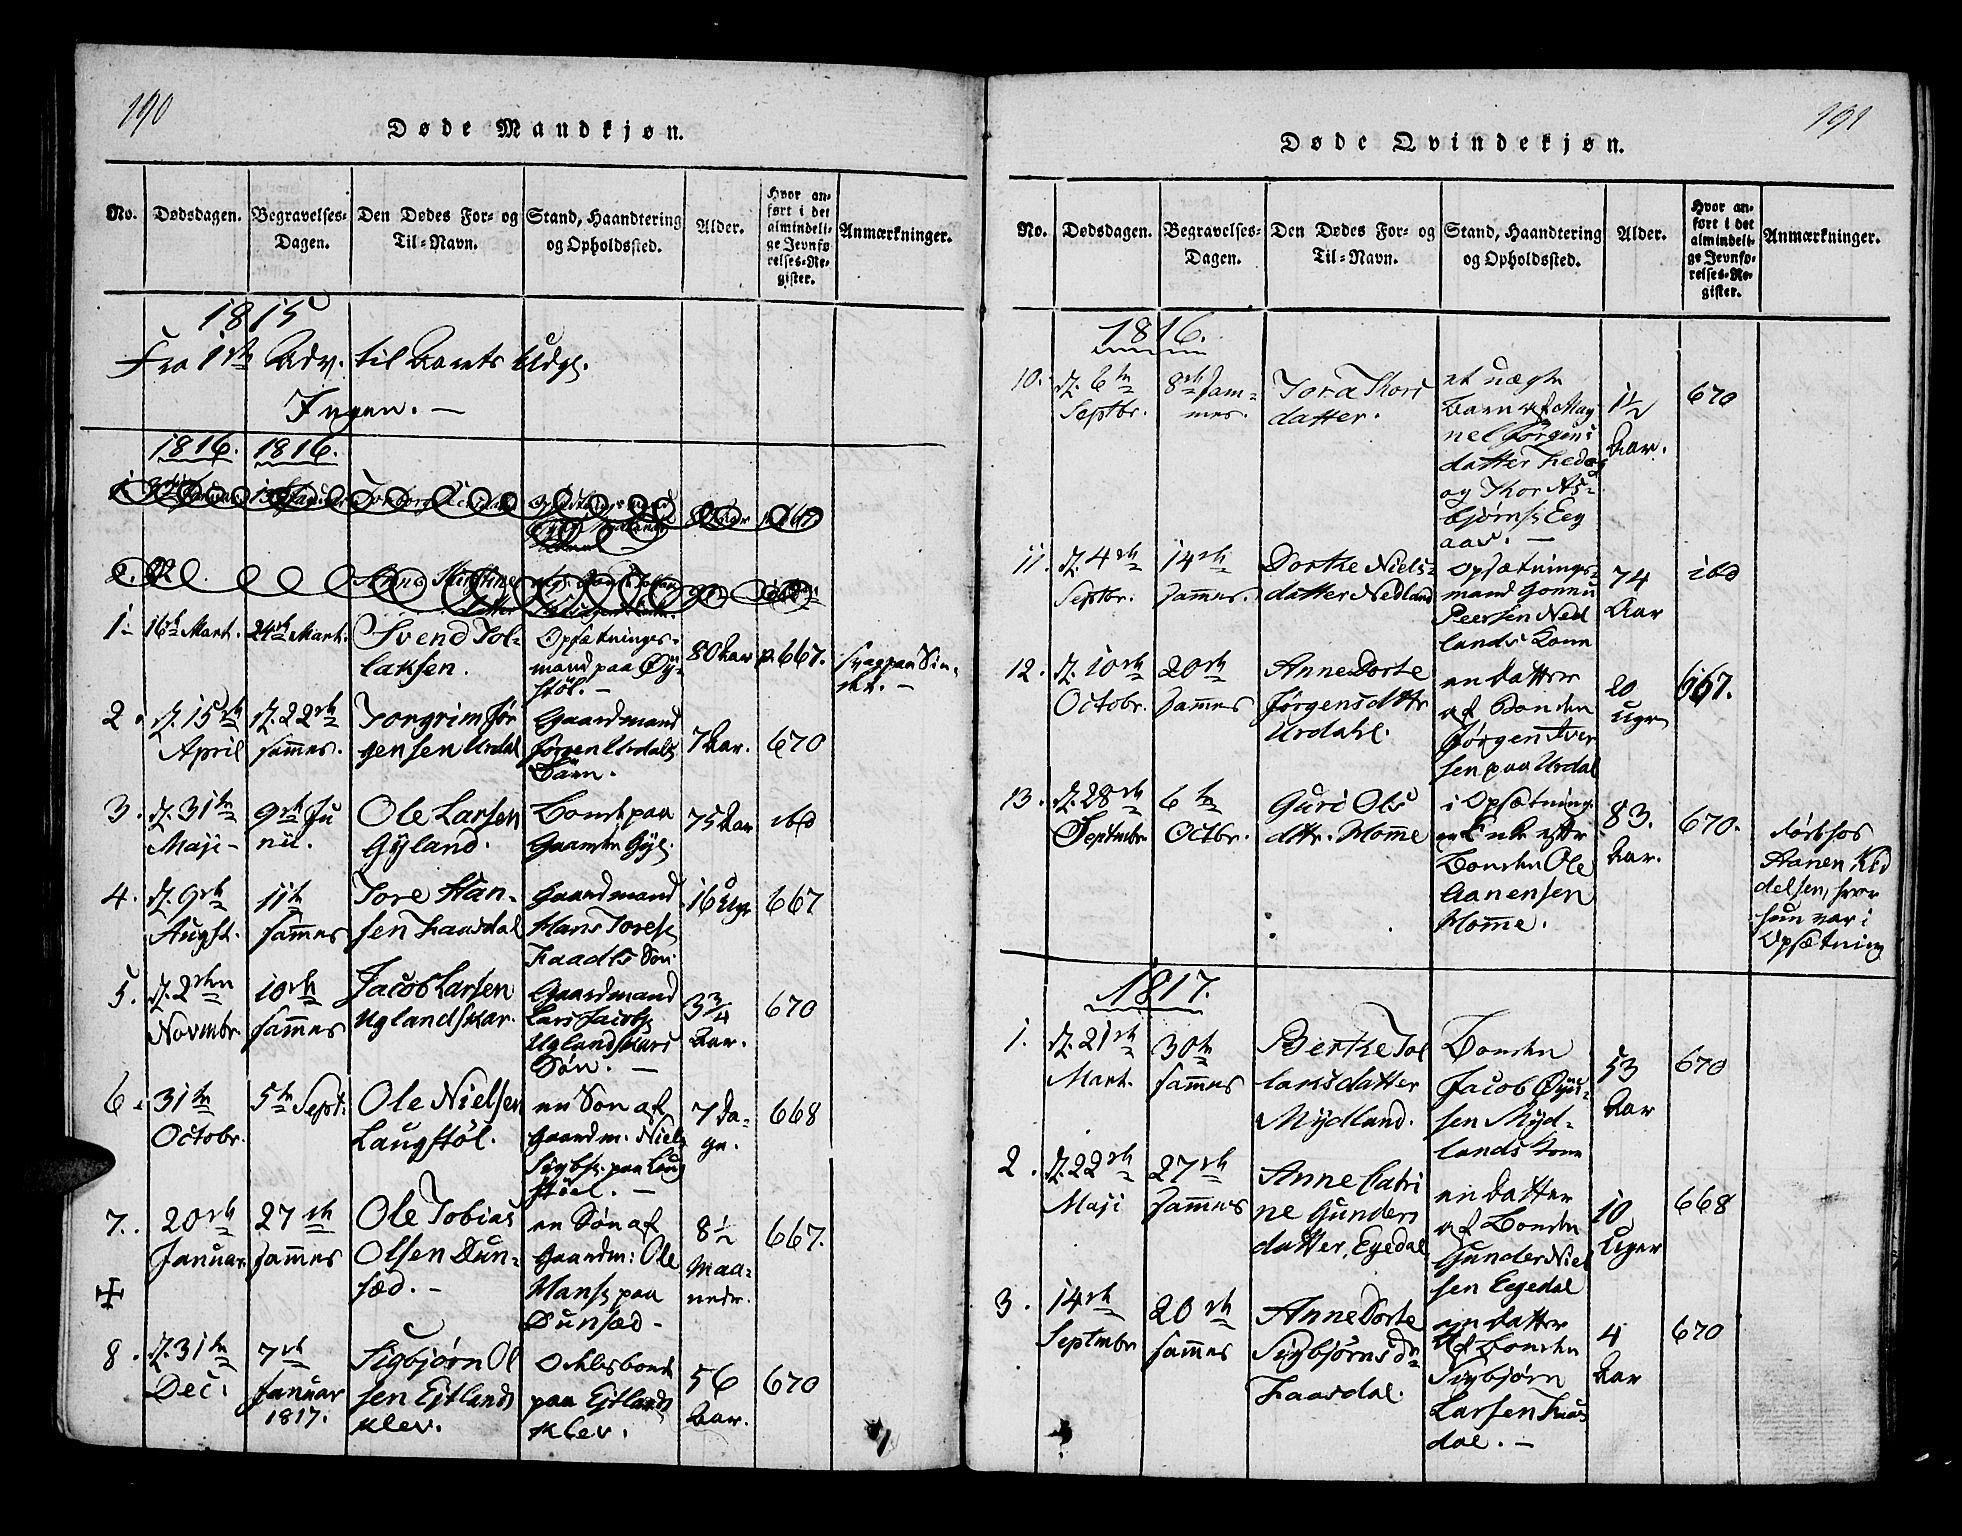 190
Døde Mandkjøn.
No.
Dødsdagen.
Begravelses-
Dagen.
Den Dødes For- og
Til-Navn.
Stand, Haandtering
og Opholdssted.
Alder.
Hvor an-
ført i det
almindeli-
ge Jevnfø-
relses-Re-
gister.
Anmærkninger.
1815
Fra 1ste Adv. til Aarets Udg.
Ingen. —
1816. 1816.
1
16de Mart.
24de Mart.
Svend Tol-
laksen.
Opsætnings-
mand paa Øy-
støl. —
80 Aar
p. 667.
2.
d. 15de
April
d. 22de
sammes.
Torgrim Jør
gensen Urdal
Gaardmand
Jørgen Urdals
Barn.
7 Aar.
670
3.
d. 31te
Maji
9de Ju
nii.
Ole Larsen
Gyland.
Bonde paa
Gaarden Gyl.
75 Aar
ibd
4.
d. 9de
Augst.
11te
sammes
Tore Han-
sen Faasdal
Gaardmand
Hans Tores.
Søn.
16 Ugr
667
5.
d. 2den
Novmbr.
10de
sammes
Jacob Larsen
Uglandskar.
Gaardmand
Lars Jacobs.
Uglandskars
Søn. —
3 3/4
Aar.
670
6.
31te
Octobr.
5te Sept.
Ole Nielsen
Laugstøl.
en Søn af
Gaardm. Niels
Sigbs. paa Laug
støel. —
7 Da-
ge.
668
7.
20de
Januar
27de
sammes
Ole Tobias
Olsen Dun-
sæd. —
en Søn af
Gaardm: Ole
Hans. paa
Dunsæd —
8 1/2
Maa-
neder.
667.
8.
d. 31te
Dec:
7de
Januar
1817.
Sigbjørn Ol
sen Ejtlands
klev.
paa Ejtlands
klev.
56
Aar.
670
191
Døde Qvindekjøn.
No.
Dødsdagen.
Begravelses-
Dagen.
Den Dødes For- og
Til-Navn.
Stand, Haandtering
og Opholdssted.
Alder.
Hvor an-
ført i det
almindeli-
ge Jevnfø-
relses-Re-
gister.
Anmærkninger.
1816.
10.
d. 6te
Septbr.
8de sam-
mes.
Tora Thors
datter.
et uægte
Barn af Mag
nel Jørgens
datter
og Thor As-
bjørns. Eeg
aas. —
1 1/2
Aar.
670
11.
d. 4de
Septbr.
14de
sammes.
Dorthe Niels-
datter Nedland
Opsætnings-
mand Gunnu
Peersen Ned
lands Kone
74
Aar
ibd
12.
d. 10de
Octobr.
20de
sammes
Anne Dorte
Jørgensdttr
Urdahl.
en Datter
af Bonden
Jørgen Iver
sen paa Urdal
20
Uger
667.
13.
d. 28de
Septmbr
6te
Octbr.
Guri Ols
dttr. Homme
i Opsætning
en Enke efter
Bonden Ole
Aanensen
Homme.
83.
Aar.
670.
Aanen Kid
delsen, hvor
hun var i
Opsætning
1817.
1.
d. 21de
Mart.
30te
sammes
Berthe Tol
laksdatter
Mydland.
Bonden
Jacob Øyu-
sen Myd-
lands Kone
53
Aar
670
2.
d. 22de
Maji
27de
sammes
Anne Catri
ne Gunders
datter, Egedal
en Datter
af Bonden
Gunder Niel
sen Eegedal
10
Uger
668
3.
14de
Septmbr
20de
sammes
Anne Dorte
Sigbjørnsdr.
Faasdal.
en Datter
af Bonden
Sigbjørn
Larsen Faas
dal. —
4
Aar
670